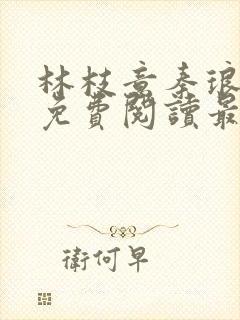 林枝意秦琅
免費閱讀最
衛何早